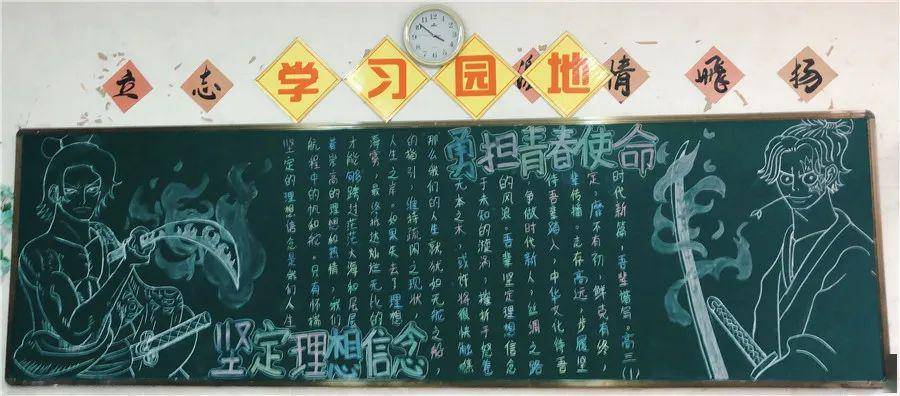 立志
学习园地
情
扬
勇担青春使命
坚定的理想信念是我们人生
航程中的帆和舵。只有怀揣
着崇高的理想和热情,我们
才能够跨过茫茫大海和层层
海雾,最终抵达灿烂无比的
人生之岸。如果失去了理想
的指引,维持现状,
那么我们的人生就犹如无舵之船,
无本之木,或许将很快触礁
于未知的漩涡,摧折于怒卷
的风浪。吾辈坚定理想信念
争做时代新人,丝绸之路
待吾辈踏入,中华文化待吾
辈传播。志存高远,步履坚
定,靡不有初,鲜克有终,
时代新篇,吾辈谱写。高三(1)
坚定理想信念